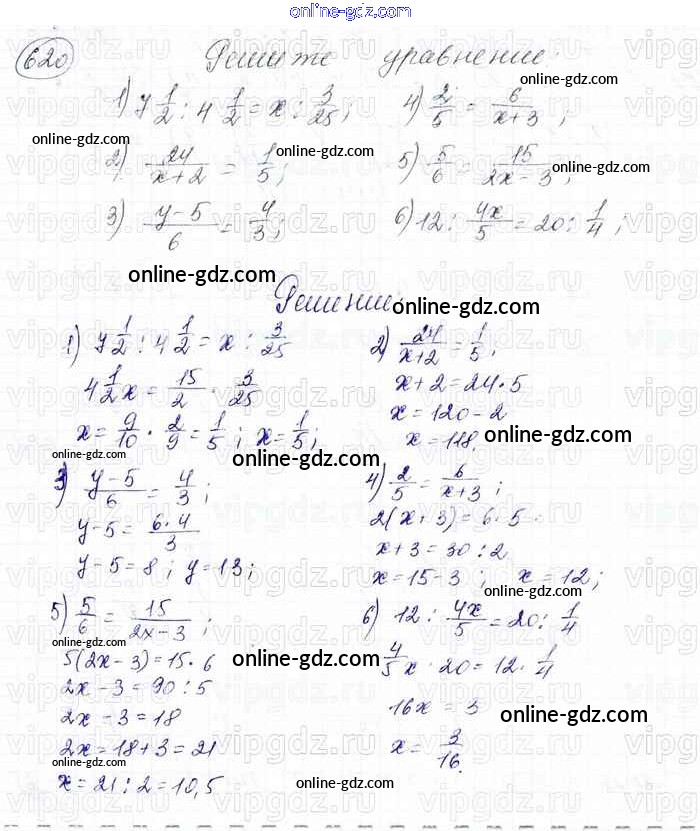 online-gdz.com
620 Решите уравнение:
1) 7 1/2 : 4 1/2 = x : 3/25; 4) 2/5 = 6/(x+3);
online-gdz.com
online-gdz.com
2) 24/(x+2) = 1/5; 5) 5/6 = 15/(2x-3);
online-gdz.com
online-gdz.com
3) (y-5)/6 = 4/3; 6) 12 : 4x/5 = 20 : 1/4;
online-gdz.com
online-gdz.com
Решение:
online-gdz.com
1) 7 1/2 : 4 1/2 = x : 3/25
4 1/2 x = 15/2 · 3/25
x = 9/10 · 2/9 = 1/5; x = 1/5;
2) 24/(x+2) = 1/5;
x+2 = 24·5
x = 120-2
x = 118.
online-gdz.com
online-gdz.com
online-gdz.com
3) (y-5)/6 = 4/3;
y-5 = (6·4)/3
y-5 = 8; y = 13;
4) 2/5 = 6/(x+3);
2(x+3) = 6·5
x+3 = 30:2
x = 15-3; x = 12;
online-gdz.com
online-gdz.com
5) 5/6 = 15/(2x-3);
5(2x-3) = 15·6
2x-3 = 90:5
2x-3 = 18
2x = 18+3 = 21
x = 21:2 = 10,5
6) 12 : 4x/5 = 20 : 1/4
4/5 x · 20 = 12 · 1/4
16x = 3
x = 3/16.
online-gdz.com
online-gdz.com
online-gdz.com
online-gdz.com
online-gdz.com